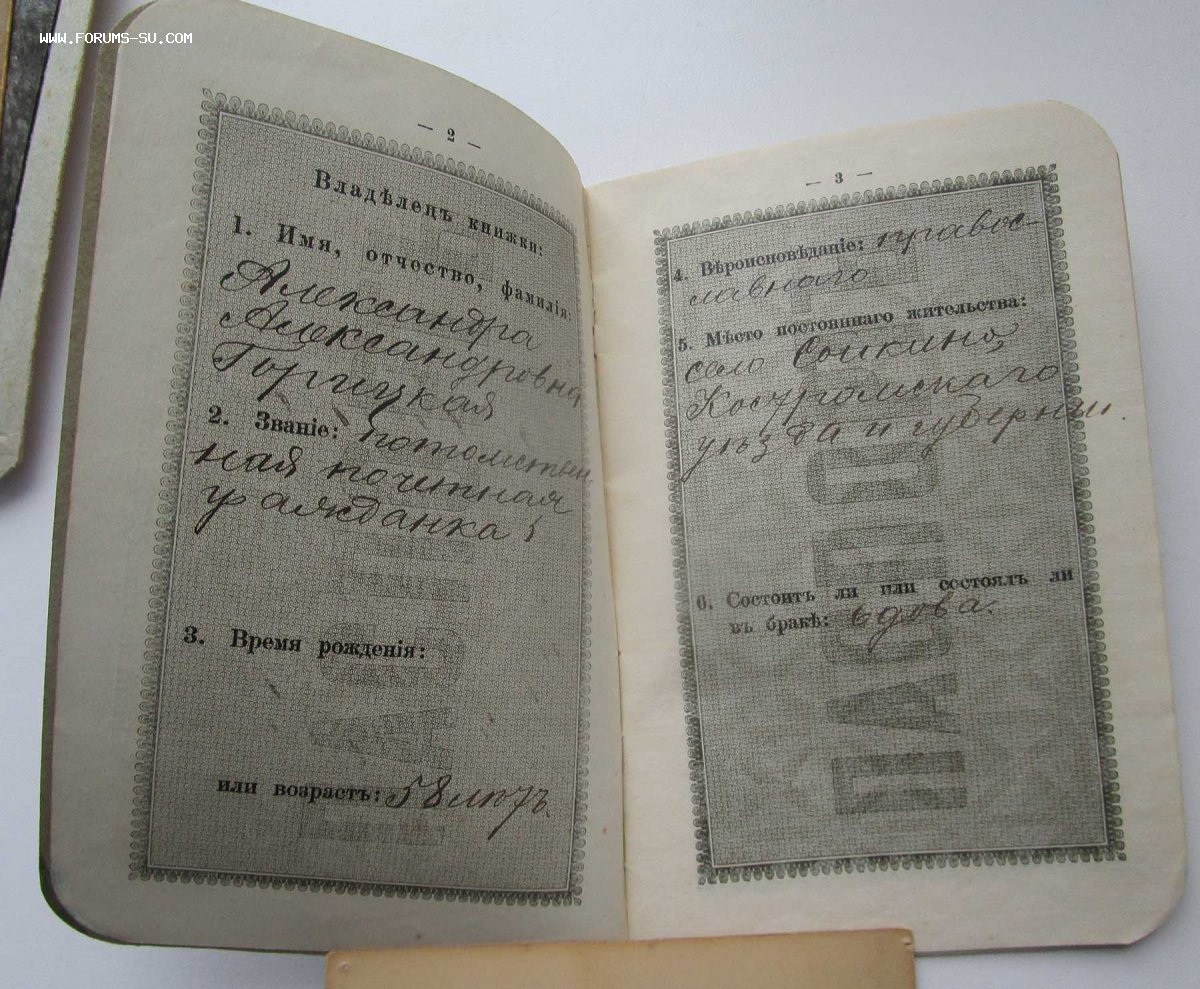 WWW.FORUMS-SU.COM
— 2 —
Владѣлецъ книжки:
1. Имя, отчество, фамилія:
Александра
Александровна
Горицкая
2. Званіе: потомствен-
ная почетная
гражданка
3. Время рожденія:
или возрастъ: 58 лѣтъ.
— 3 —
4. Вѣроисповѣданіе: правос-
лавнаго
5. Мѣсто постояннаго жительства:
село
Костромскаго
уѣзда и губерніи.
6. Состоитъ ли или состоялъ ли
въ бракѣ: вдова.
ПАСПОРТ